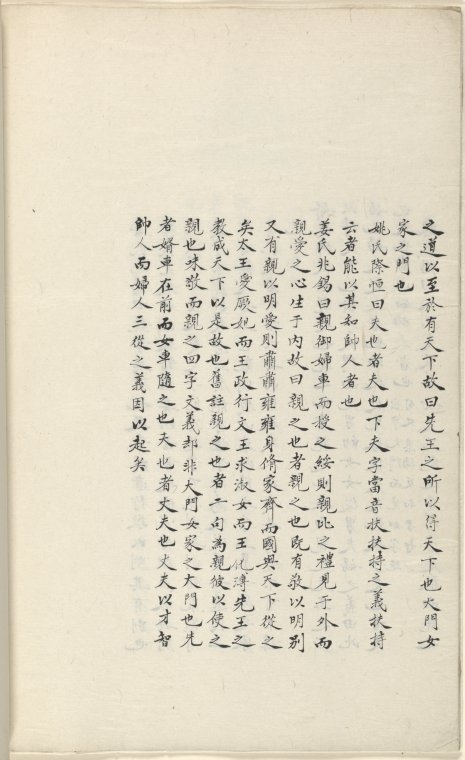 之道以至於有天下故曰先王之所以得天下也大門女
家之門也
姚氏際恒曰夫也者夫也下夫字當音扶扶持之義扶持
云者能以其知帥人者也
姜氏兆錫曰親御婦車而授之綏則親比之禮見于外而
親愛之心生于内故曰親之也者親之也既有敬以明别
又有親以明愛則肅肅雍雍身脩家齊而國與天下從之
矣太王愛厥妃而王政行文王求淑女而王化溥先王之
教成天下以是故也舊註親之也者二句為親彼以使之
親也味敬而親之四字文義却非大門女家之大門也先
者婿車在前而女車隨之也夫也者丈夫也丈夫以才智
帥人而婦人三從之義因以起矣